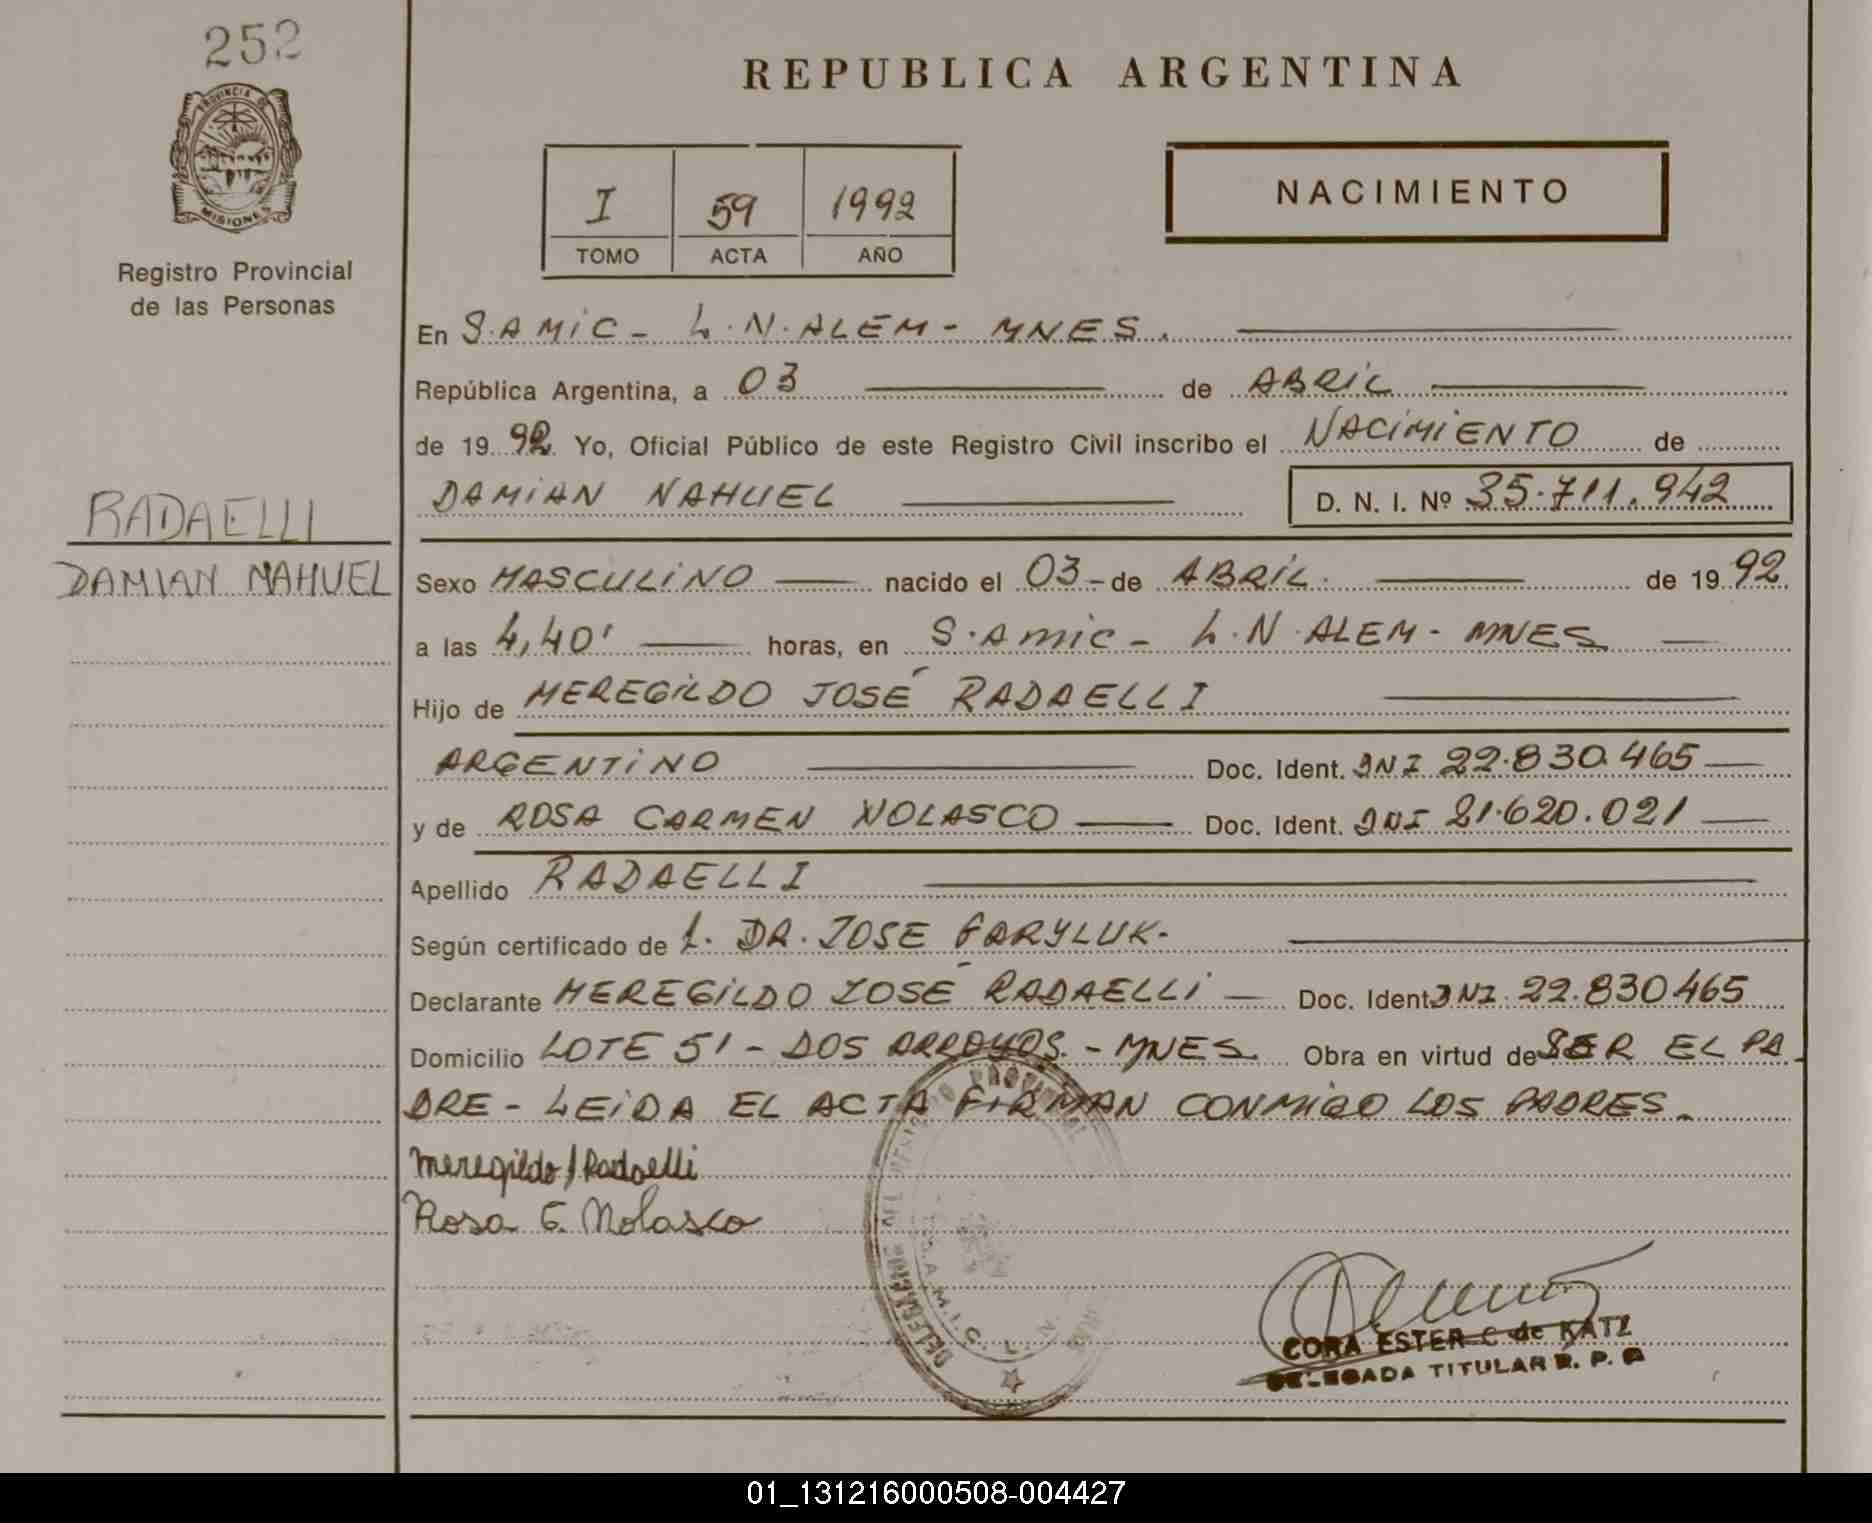 252
REPUBLICA ARGENTINA
PROVINCIA DE
MISIONES
Registro Provincial
de las Personas
I 59 1992
TOMO ACTA AÑO
NACIMIENTO
En S.AMIC - L.N.ALEM - MNES.
República Argentina, a 03 de ABRIL
de 1992. Yo, Oficial Público de este Registro Civil inscribo el NACIMIENTO de
DAMIAN NAHUEL D. N. I. Nº 35.711.942
RADAELLI
DAMIAN NAHUEL
Sexo MASCULINO nacido el 03 - de ABRIL. de 1992
a las 4,40' horas, en S.AMIC - L.N.ALEM - MNES
Hijo de MEREGILDO JOSÉ RADAELLI
ARGENTINO Doc. Ident. DNI 22.830.465
y de ROSA CARMEN NOLASCO Doc. Ident. DNI 21.620.021
Apellido RADAELLI
Según certificado de L. DR. JOSE GARYLUK.
Declarante MEREGILDO JOSÉ RADAELLI Doc. Ident DNI. 22.830465
Domicilio LOTE 51 - DOS ARROYOS. - MNES. Obra en virtud de SER EL PA
DRE - LEIDA EL ACTA FIRMAN CONMIGO LOS PADRES.
Meregildo J Radaelli
Rosa C. Nolasco
S.A.M.I.C. L. N.
CORA ESTER C de KATZ
DELEGADA TITULAR R. P. P
01_131216000508-004427